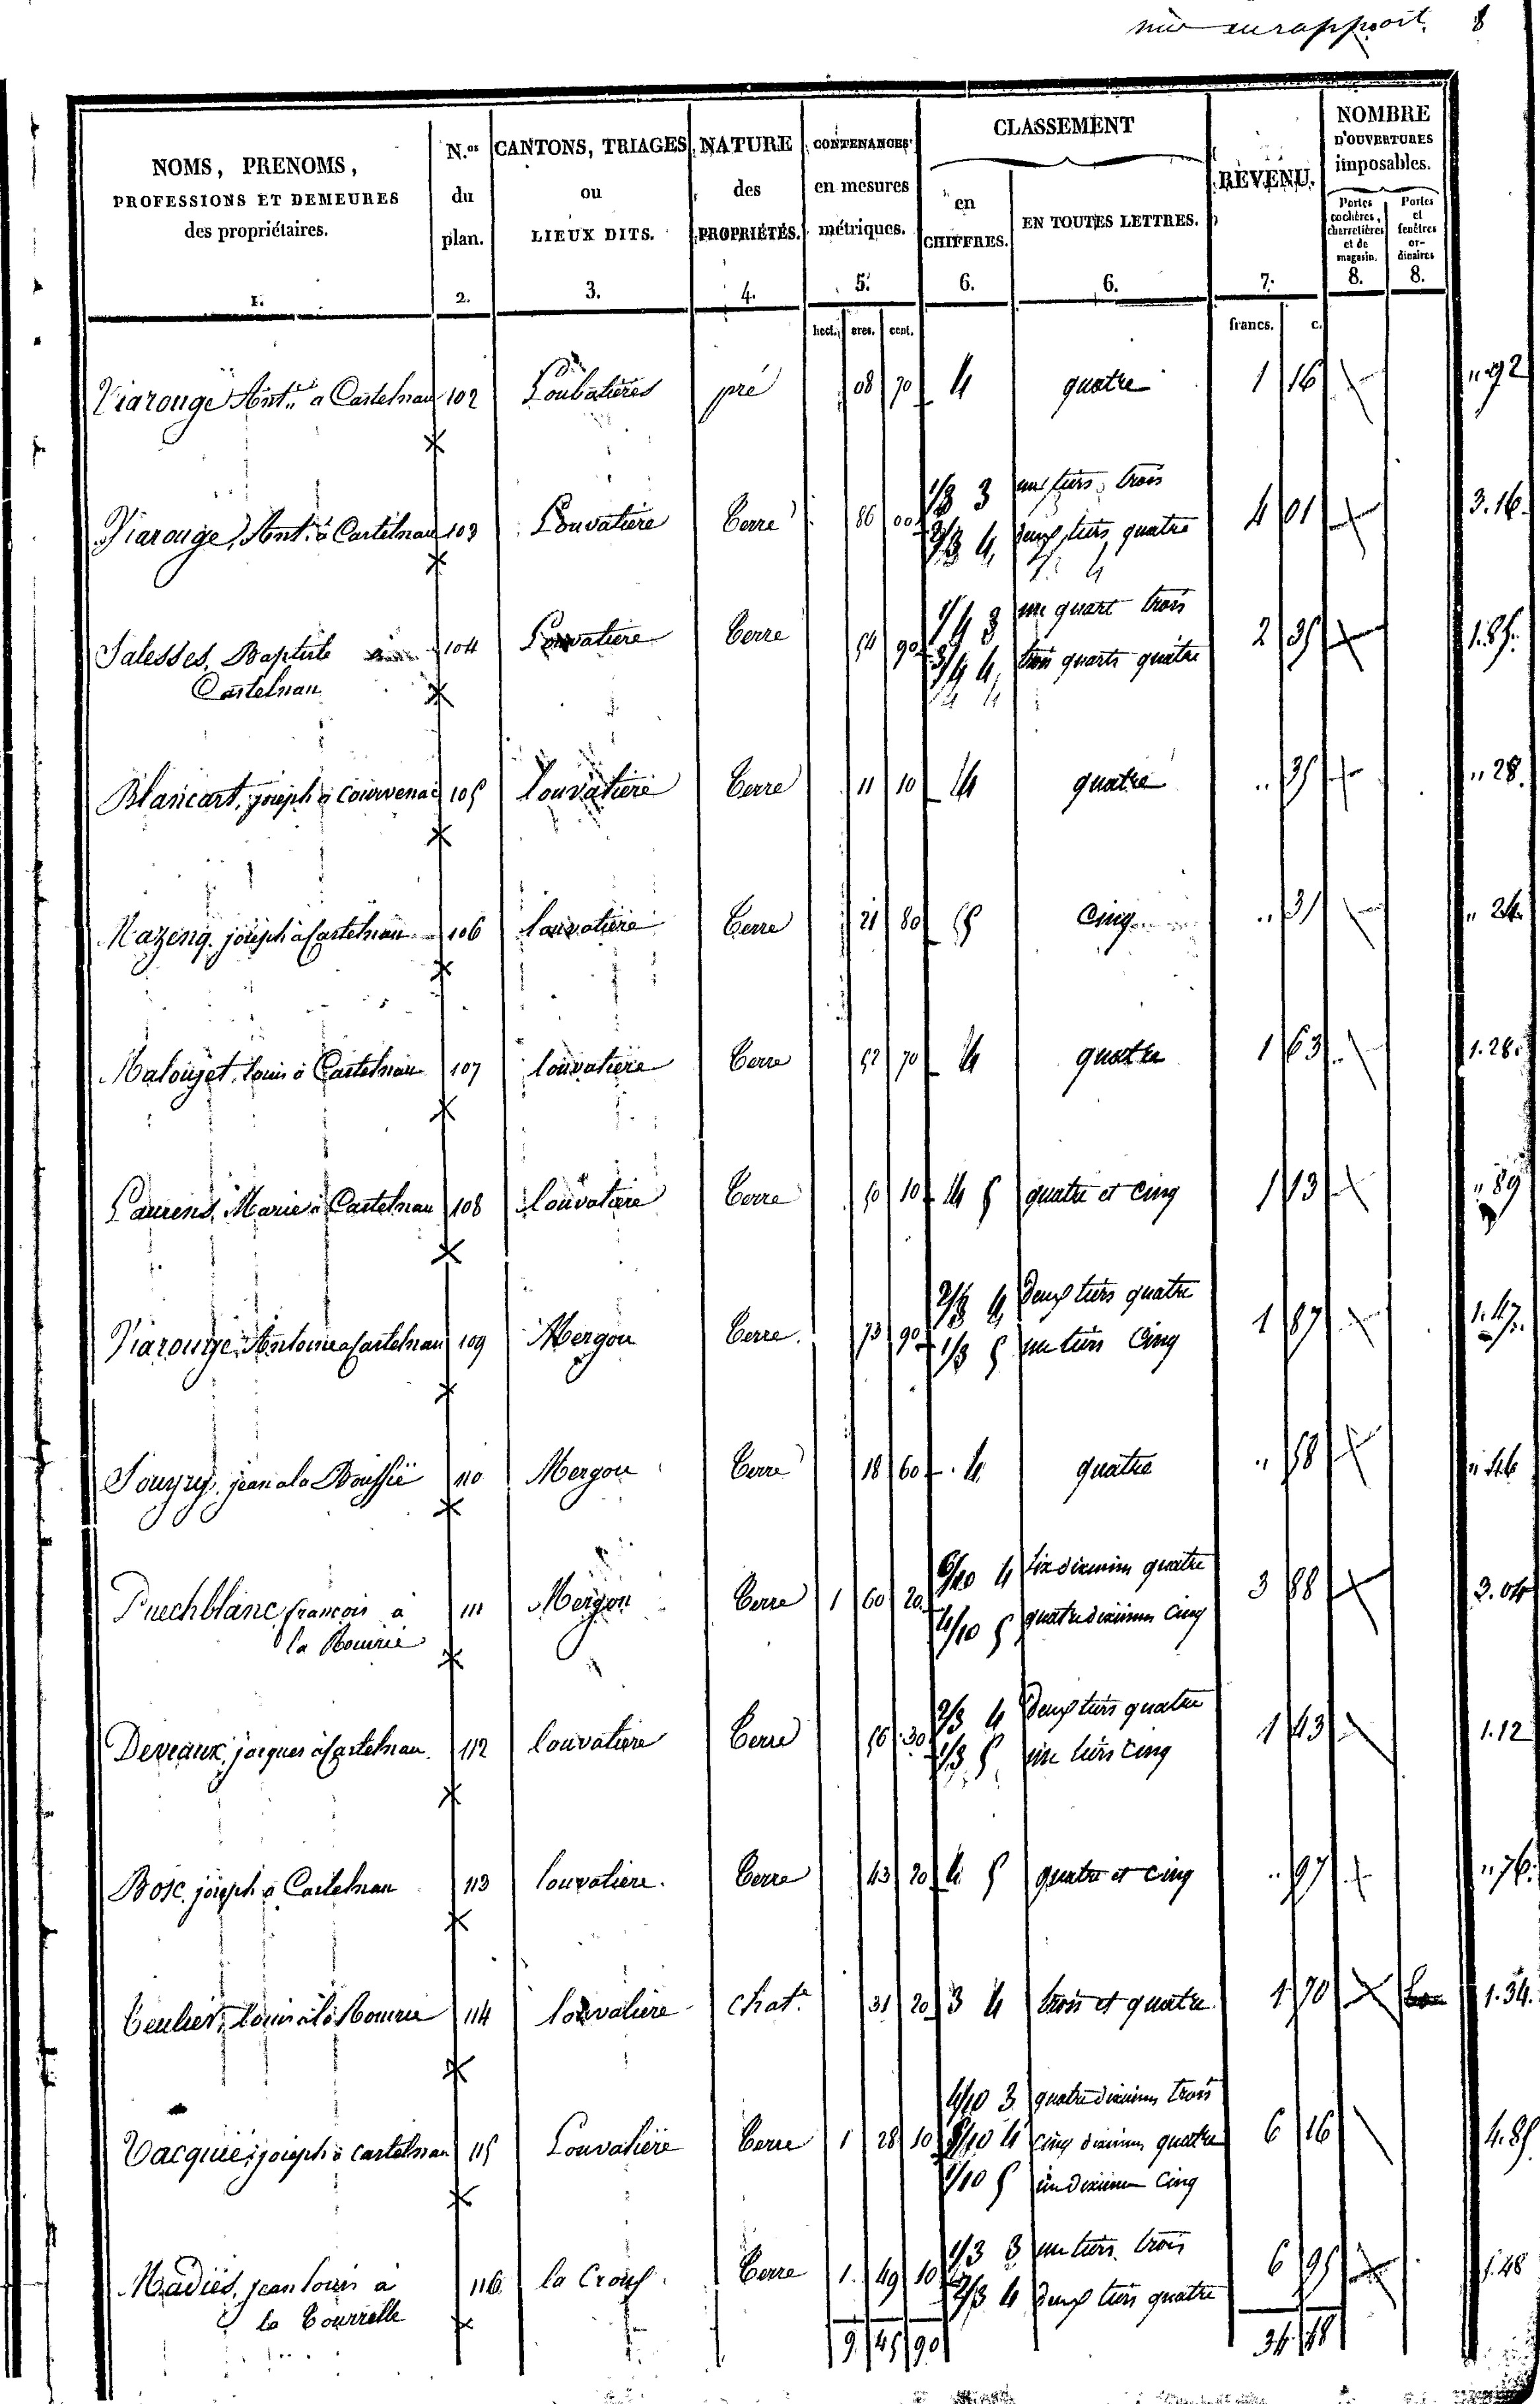 mis au rapport. 8
NOMS, PRENOMS, PROFESSIONS ET DEMEURES des propriétaires. 1.
N.os du plan. 2.
CANTONS, TRIAGES ou LIEUX DITS. 3.
NATURE des PROPRIÉTÉS. 4.
CONTENANCES en mesures métriques. 5.
CLASSEMENT
en CHIFFRES. 6.
EN TOUTES LETTRES. 6.
REVENU. 7.
NOMBRE D'OUVERTURES imposables.
Portes cochères, charretières et de magasin. 8.
Portes et fenêtres ordinaires 8.
hect. ares. cent. francs. c.
Viarouge Ant.e a Castelnau 102 Loubatieres pré 08 70 4 quatre 1 16 " 92
1/3 3 un tiers trois
Viarouge, Ant. à Castelnau 103 Louvatiere Terre 86 00 2/3 4 deux tiers quatre 4 01 3.16.
1/4 3 un quart trois
Salesses, Baptiste à 104 Louvatiere Terre 54 90 3/4 4 trois quarts quatre 2 35 1.85.
Castelnau
Blancart, joseph à Courvenac 105 Louvatiere Terre 11 10 4 quatre " 35 " 28.
Mazenq joseph à Castelnau 106 louvatiere Terre 21 80 5 Cinq " 31 " 24.
Malouget, louis à Castelnau 107 louvatiere Terre 52 70 4 quatre 1 63 1.28.
Laurens, Marie à Castelnau 108 louvatiere Terre 50 10 4 5 quatre et Cinq 1 13 " 89
2/3 4 deux tiers quatre
Viarouge Antoine a Castelnau 109 Mergou Terre 73 90 1/3 5 un tiers Cinq 1 87 1.47.
Souyry, jean a la Boissié 110 Mergou Terre 18 60 4 quatre " 58 " 46
6/10 4 six dixiemes quatre
Puechblanc françois à 111 Mergou Terre 1 60 20 4/10 5 quatre dixiemes Cinq 3 88 3.04
la Rouirié
2/3 4 Deux tiers quatre
Devraux, jacques à Castelnau. 112 louvatiere Terre 56 30 1/3 5 un tiers Cinq 1 43 1.12
Bosc joseph a Castelnau 113 louvatiere. Terre 43 20 4 5 quatre et Cinq " 97 " 76.
Teulier, louis à la Rouirie 114 louvatiere chat.e 31 20 3 4 trois et quatre 1 70 1.34.
4/10 3 quatre dixiemes trois
Vacquié, joseph à castelnau 115 Louvatiere Terre 1 28 10 5/10 4 cinq dixiemes quatre 6 16 4.85
1/10 5 un dixieme Cinq
1/3 3 un tiers trois
Madiès, jean louis à 116 la Croux Terre 1 49 10 2/3 4 deux tiers quatre 6 95 5.48
la Tourrelle
9 45 90 34 48